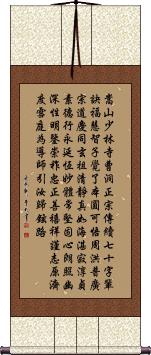 嵩山少林寺曹洞正宗傳續七十字輩
訣福慧智子覺了本圓可悟周洪普廣
宗道慶同玄祖清靜真如海湛寂淳貞
素德行永延恆妙體常堅固心朗照幽
深性明鑒崇祚忠正善禧祥謹志原濟
度雪庭為導師引汝歸鉉路